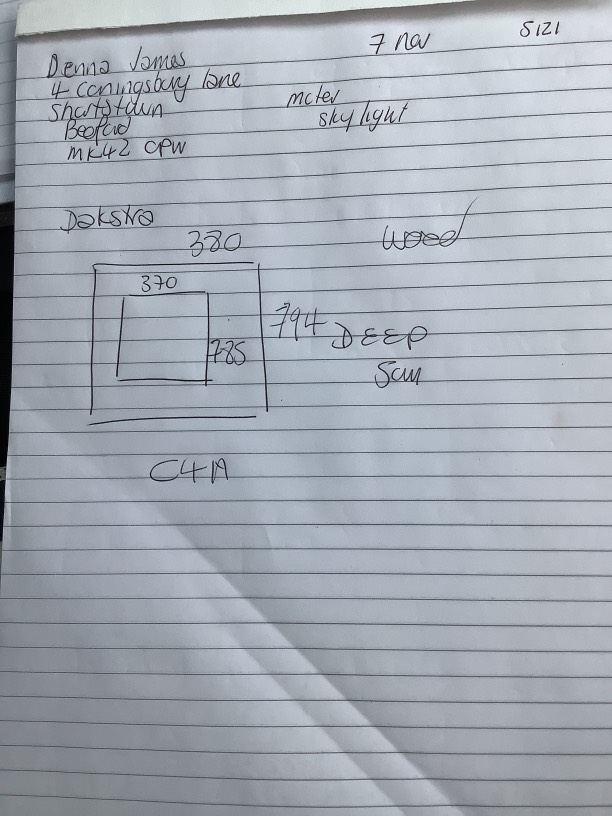 7 nov
5121
Denna James
4 Coningsbury lane
Shortstown
Bedford
MK42 0PW
skylight
Dakstra
380
Wood
370
794 DEEP
785
5cm
C4A